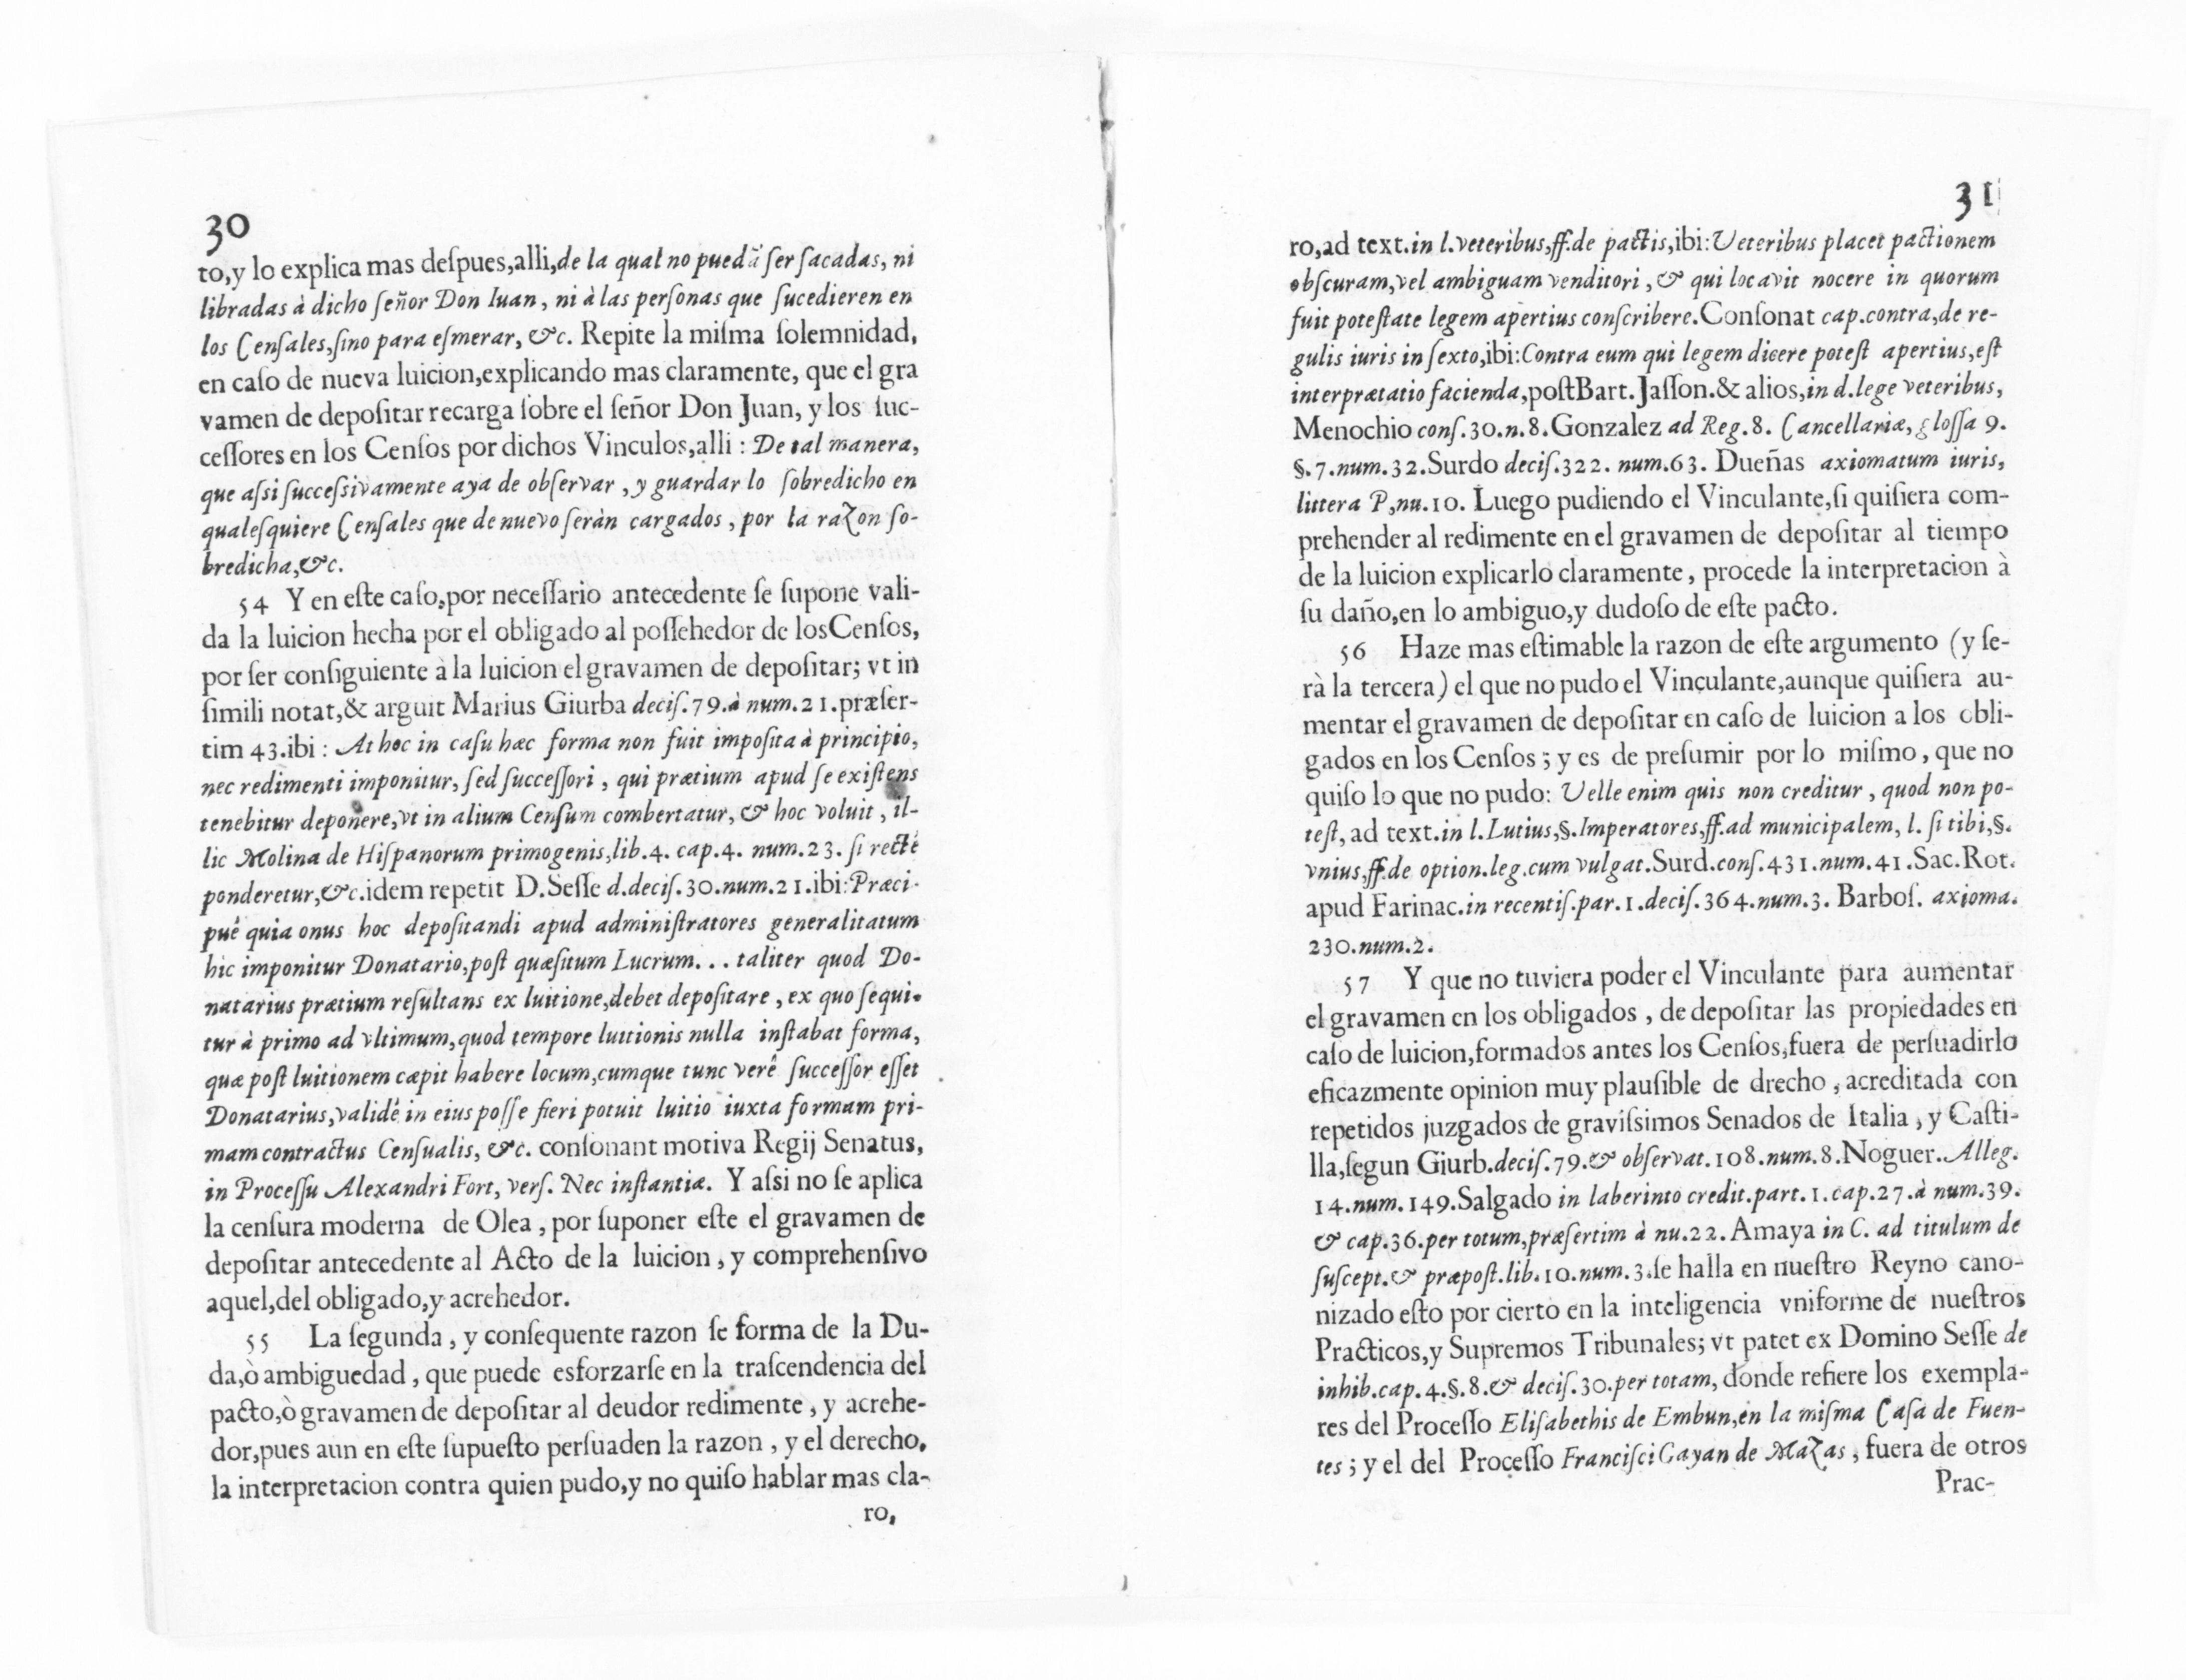 30
to,y lo explica mas deſpues,alli,de la qual no puedã ſer ſacadas, ni
libradas à dicho ſeñor Don Iuan, ni à las perſonas que ſucedieren en
los Cenſales,ſino para eſmerar, &c. Repite la miſma ſolemnidad,
en caſo de nueva luicion,explicando mas claramente, que el gra
vamen de depoſitar recarga ſobre el ſeñor Don Juan, y los ſuc-
ceſſores en los Cenſos por dichos Vinculos,alli : De tal manera,
que aſsi ſucceſsivamente aya de obſervar , y guardar lo ſobredicho en
qualeſquiere Cenſales que de nuevo ſeràn cargados , por la razon ſo-
bredicha,&c.
54 Y en eſte caſo,por neceſſario antecedente ſe ſupone vali-
da la luicion hecha por el obligado al poſſehedor de los Cenſos,
por ſer conſiguiente à la luicion el gravamen de depoſitar; vt in
ſimili notat,& arguit Marius Giurba deciſ.79.à num.21.præſer-
tim 43.ibi : At hoc in caſu hæc forma non fuit impoſita à principio,
nec redimenti imponitur, ſed ſucceſſori , qui prætium apud ſe exiſtens
tenebitur deponere,vt in alium Cenſum combertatur, & hoc voluit , il-
lic Molina de Hiſpanorum primogenis,lib.4. cap.4. num.23. ſi rectè
ponderetur,&c.idem repetit D.Seſſe d.deciſ.30.num.21.ibi:Præci-
puê quia onus hoc depoſitandi apud adminiſtratores generalitatum
hic imponitur Donatario,poſt quæſitum Lucrum... taliter quod Do-
natarius prætium reſultans ex luitione,debet depoſitare , ex quo ſequi-
tur à primo ad vltimum,quod tempore luitionis nulla inſtabat forma,
quæ poſt luitionem cæpit habere locum,cumque tunc verê ſucceſſor eſſet
Donatarius,validè in eius poſſe fieri potuit luitio iuxta formam pri-
mam contractus Cenſualis, &c. conſonant motiva Regij Senatus,
in Proceſſu Alexandri Fort, verſ. Nec inſtantiæ. Y aſsi no ſe aplica
la cenſura moderna de Olea , por ſuponer eſte el gravamen de
depoſitar antecedente al Acto de la luicion , y comprehenſivo
aquel,del obligado,y acrehedor.
55 La ſegunda , y conſequente razon ſe forma de la Du-
da,ò ambiguedad , que puede esforzarſe en la traſcendencia del
pacto,ò gravamen de depoſitar al deudor redimente , y acrehe-
dor,pues aun en eſte ſupueſto perſuaden la razon , y el derecho,
la interpretacion contra quien pudo,y no quiſo hablar mas cla-
ro,
31
ro,ad text.in l.veteribus,ff.de pactis,ibi:Veteribus placet pactionem
obſcuram,vel ambiguam venditori , & qui locavit nocere in quorum
fuit poteſtate legem apertius conſcribere.Conſonat cap.contra,de re-
gulis iuris in ſexto,ibi:Contra eum qui legem dicere poteſt apertius,eſt
interprætatio facienda,poſt Bart. Jaſſon.& alios,in d.lege veteribus,
Menochio conſ.30.n.8.Gonzalez ad Reg.8. Cancellariæ, gloſſa 9.
§.7.num.32.Surdo deciſ.322. num.63. Dueñas axiomatum iuris,
littera P,nu.10. Luego pudiendo el Vinculante,ſi quiſiera com-
prehender al redimente en el gravamen de depoſitar al tiempo
de la luicion explicarlo claramente , procede la interpretacion à
ſu daño,en lo ambiguo,y dudoſo de eſte pacto.
56 Haze mas eſtimable la razon de eſte argumento (y ſe-
rà la tercera) el que no pudo el Vinculante,aunque quiſiera au-
mentar el gravamen de depoſitar en caſo de luicion a los obli-
gados en los Cenſos ; y es de preſumir por lo miſmo , que no
quiſo lo que no pudo: Velle enim quis non creditur , quod non po-
teſt, ad text.in l.Lutius,§.Imperatores,ff.ad municipalem, l. ſi tibi,§.
vnius,ff.de option.leg.cum vulgat.Surd.conſ.431.num.41.Sac.Rot.
apud Farinac.in recentiſ.par.1.deciſ.364.num.3. Barboſ. axioma.
230.num.2.
57 Y que no tuviera poder el Vinculante para aumentar
el gravamen en los obligados , de depoſitar las propiedades en
caſo de luicion,formados antes los Cenſos,fuera de perſuadirlo
eficazmente opinion muy plauſible de drecho , acreditada con
repetidos juzgados de graviſsimos Senados de Italia , y Caſti-
lla,ſegun Giurb.deciſ.79.& obſervat.108.num.8.Noguer.Alleg.
14.num.149.Salgado in laberinto credit.part.1.cap.27.à num.39.
& cap.36.per totum,præſertim à nu.22. Amaya in C. ad titulum de
ſuſcept.& præpoſt.lib.10.num.3.ſe halla en nueſtro Reyno cano-
nizado eſto por cierto en la inteligencia vniforme de nueſtros
Practicos,y Supremos Tribunales; vt patet ex Domino Seſſe de
inhib.cap.4.§.8.& deciſ.30.per totam, donde refiere los exempla-
res del Proceſſo Eliſabethis de Embun,en la miſma Caſa de Fuen-
tes ; y el del Proceſſo Franciſci Gayan de Mazas , fuera de otros
Prac-